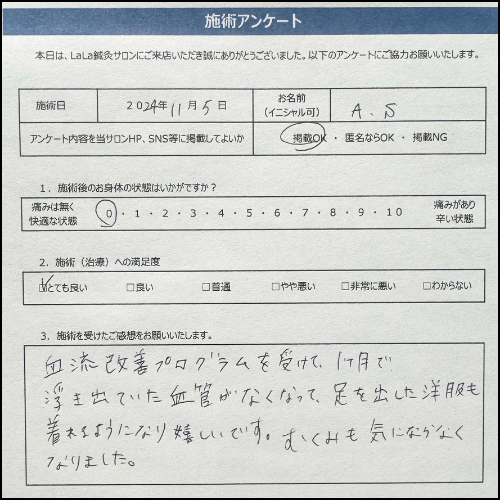 施術アンケート
本日は、LaLa鍼灸サロンにご来店いただき誠にありがとうございました。以下のアンケートにご協力お願いいたします。
施術日 2024年11月5日 お名前(イニシャル可) A.S
アンケート内容を当サロンHP、SNS等に掲載してよいか 掲載OK ・ 匿名ならOK ・ 掲載NG
1.施術後のお身体の状態はいかがですか?
痛みは無く快適な状態 0・1・2・3・4・5・6・7・8・9・10 痛みがあり辛い状態
2.施術(治療)への満足度
☑とても良い □良い □普通 □やや悪い □非常に悪い □わからない
3.施術を受けたご感想をお願いいたします。
血流改善プログラムを受けて、1ヶ月で
浮き出ていた血管がなくなって、足を出した洋服も
着れるようになり嬉しいです。むくみも気にならなく
なりました。